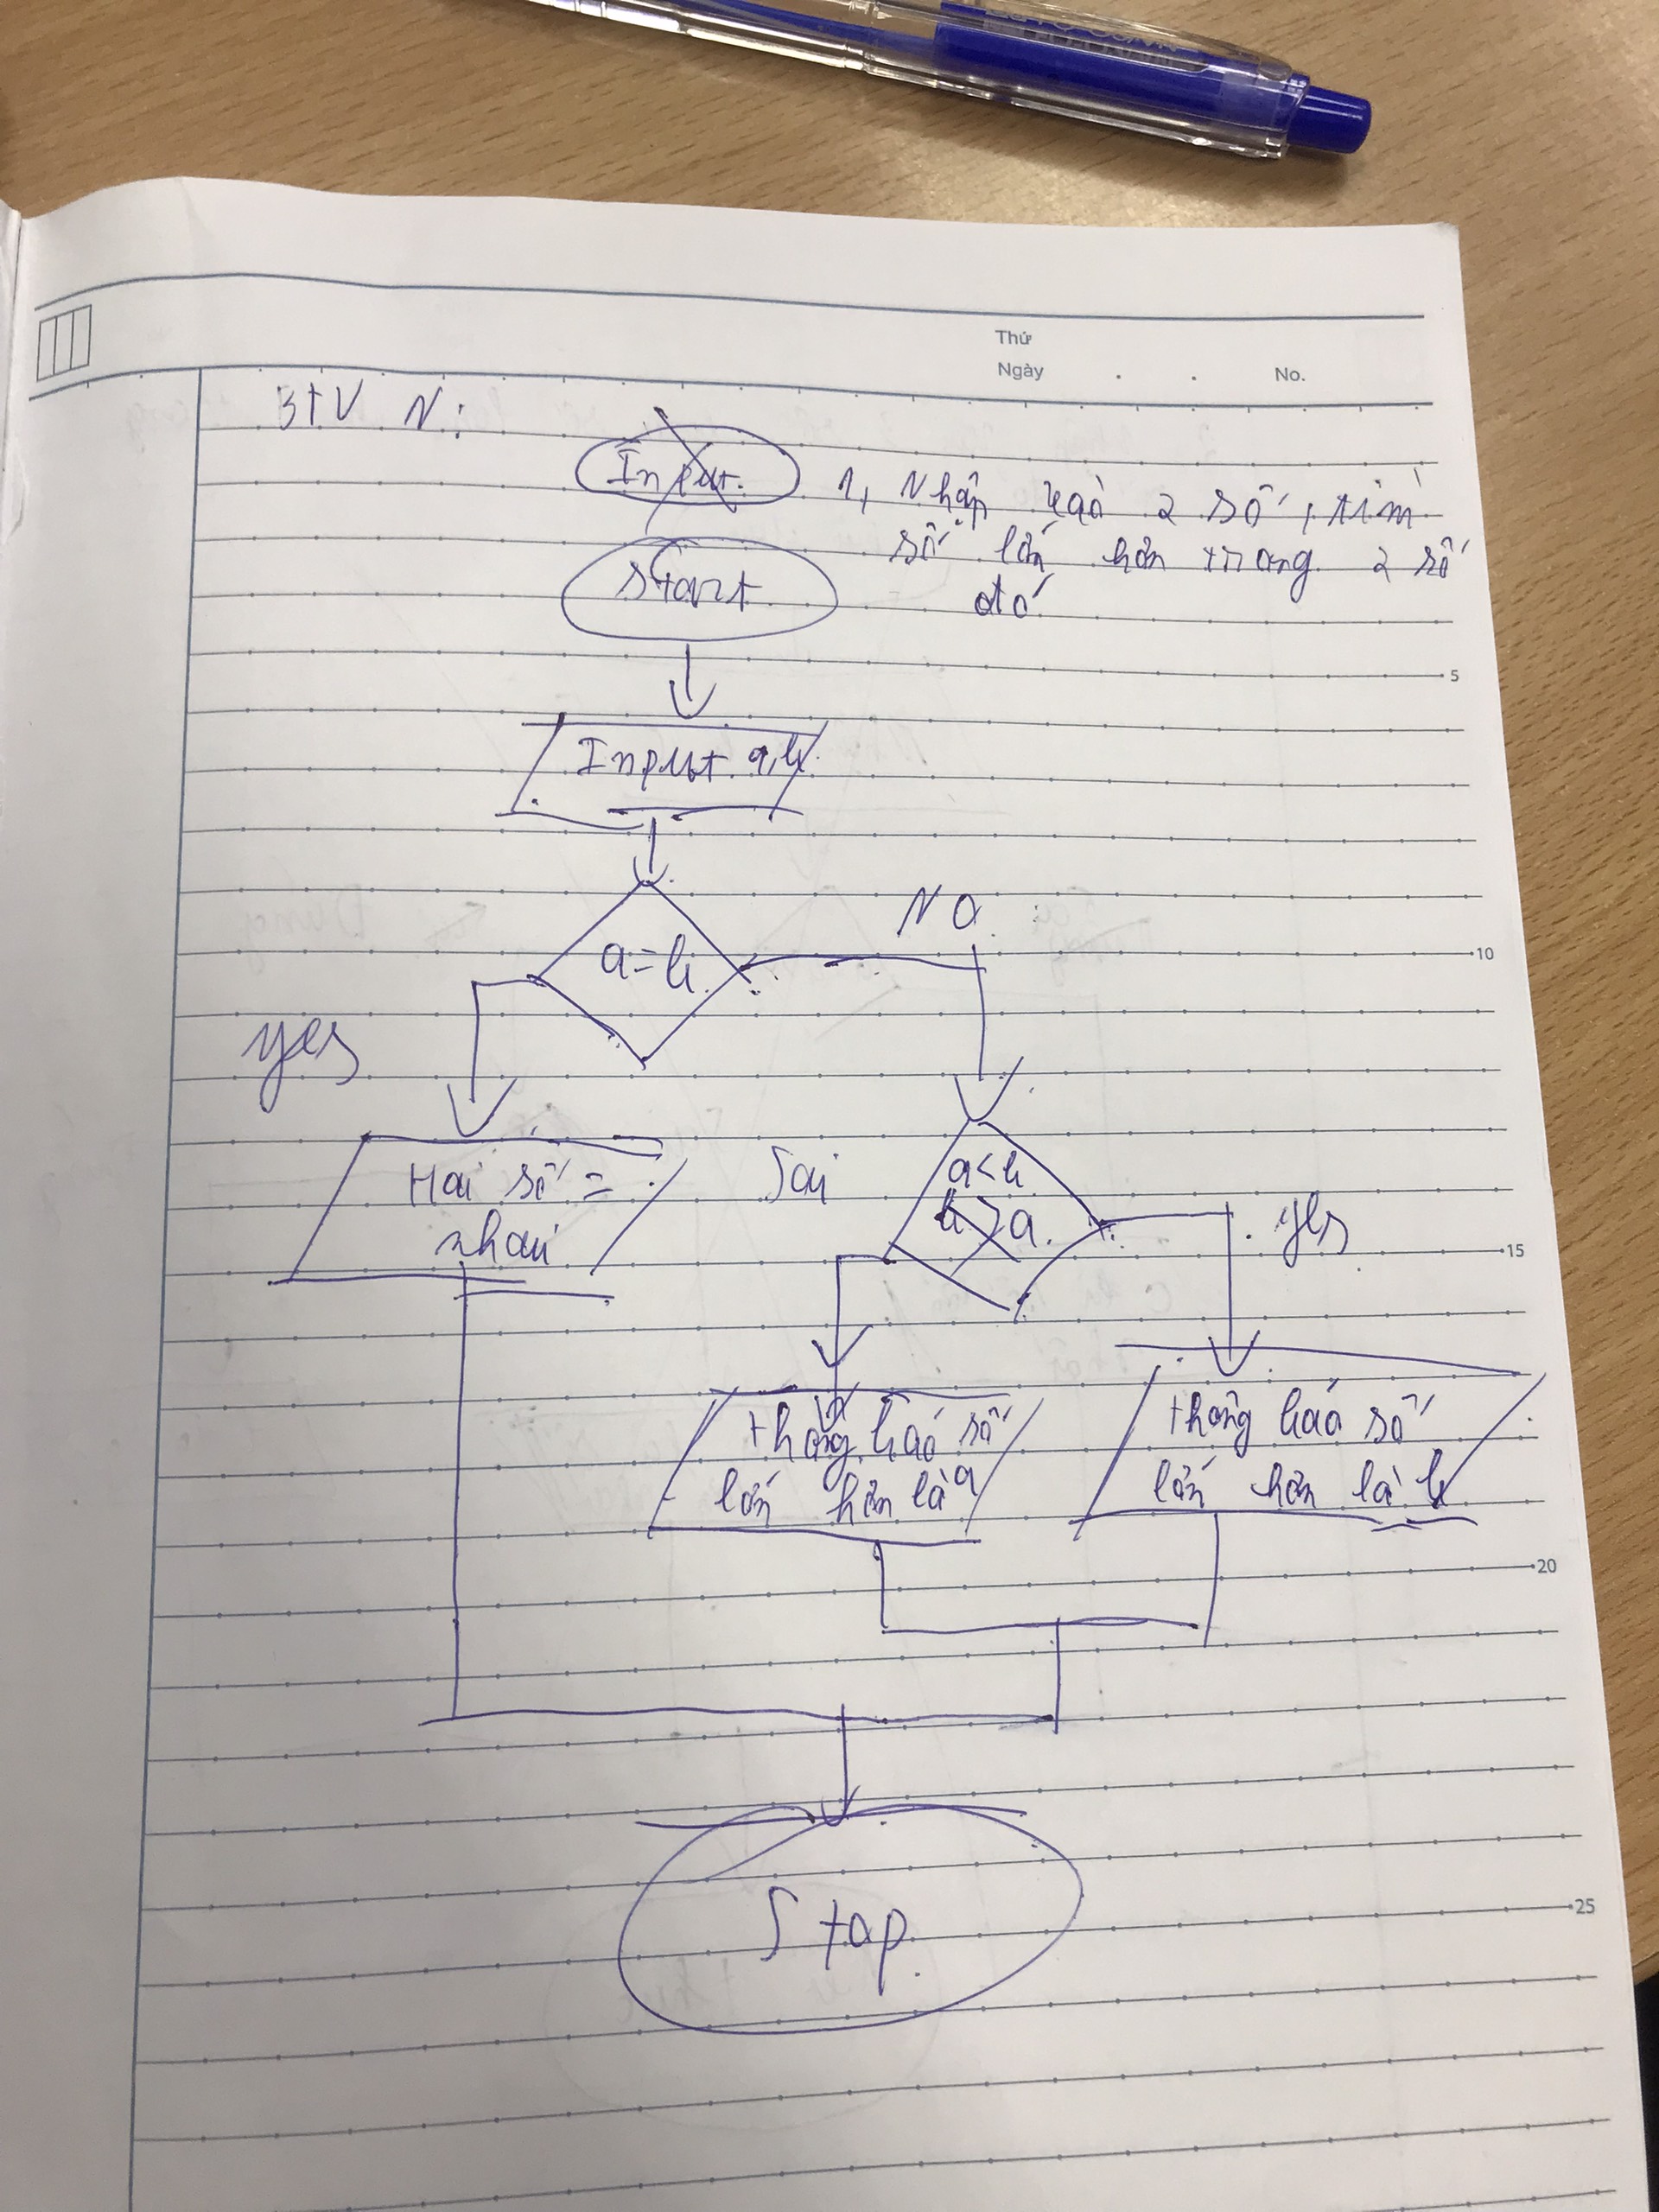 Thứ
Ngày . . No.
BTVN:
Input.
1, Nhập vào 2 số, tìm
số lớn hơn trong 2 số
đó
Start
5
Input a,b
NO
a=b
10
yes
Hai số =
nhau
Sai
a<b
b>a
yes
15
thông báo số
lớn hơn là a
thông báo số
lớn hơn là b
20
Stop
25